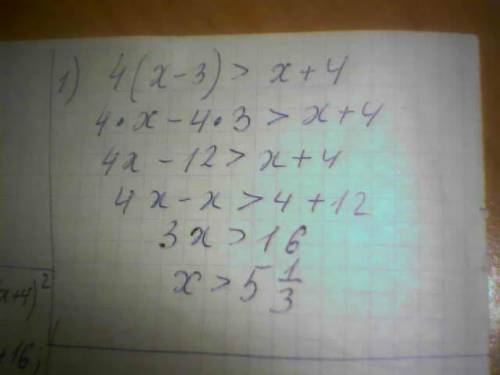 1) 4(x-3) > x+4
4·x-4·3 > x+4
4x-12 > x+4
4x-x > 4+12
3x > 16
x > 5 1/3
x+4)²
16;